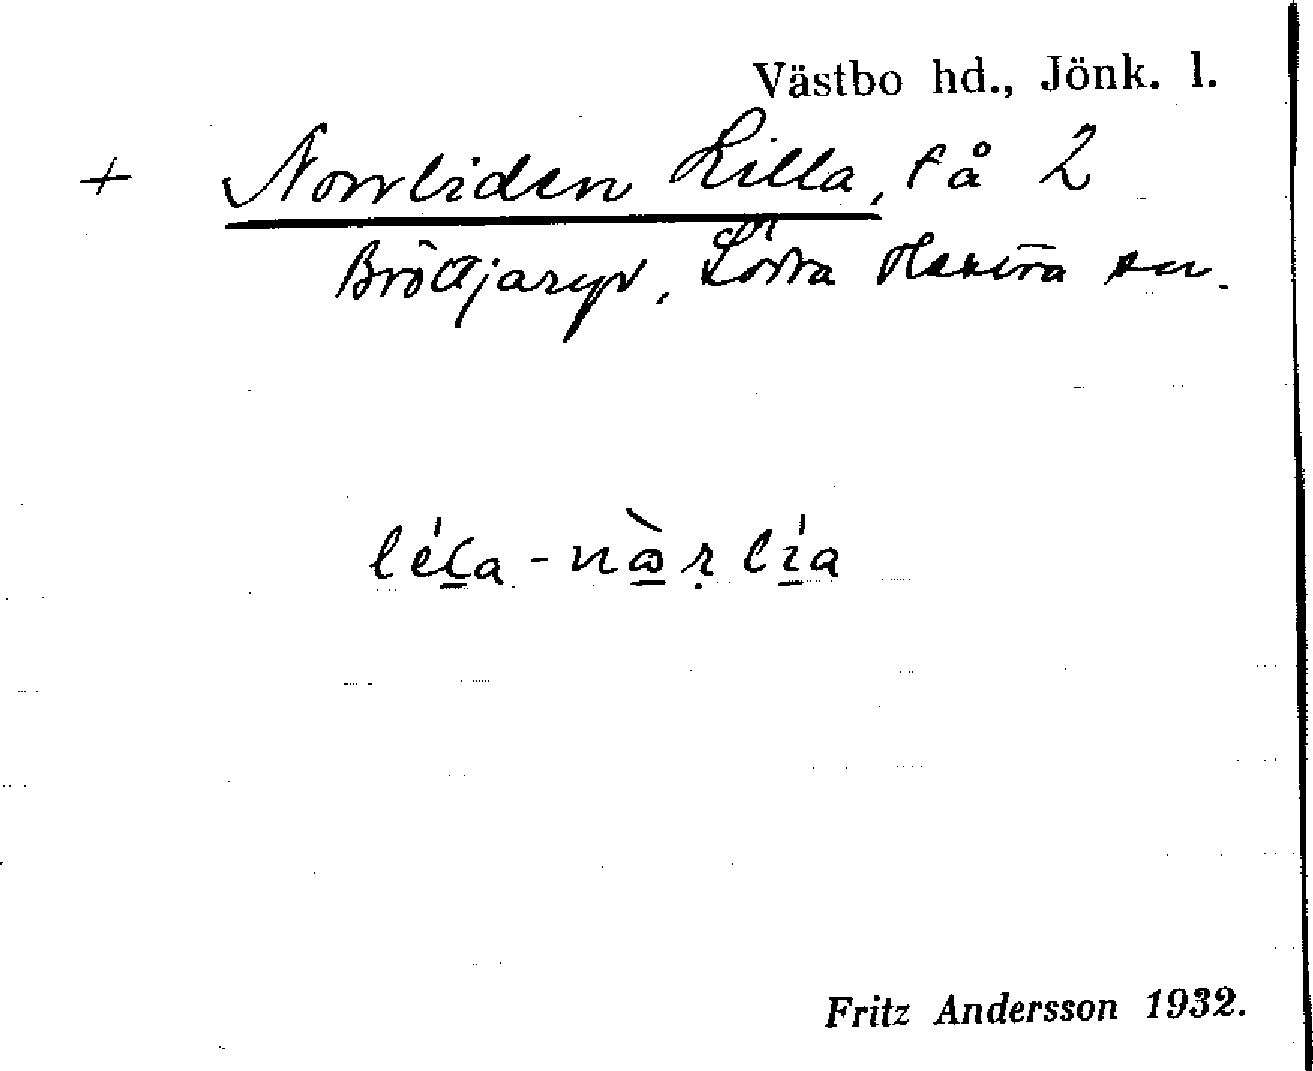 Västbo hd., Jönk. l.
+ Norrliden Lilla, på 2
Bröttjaryd, Södra Hestra sn.
Fritz Andersson 1932.